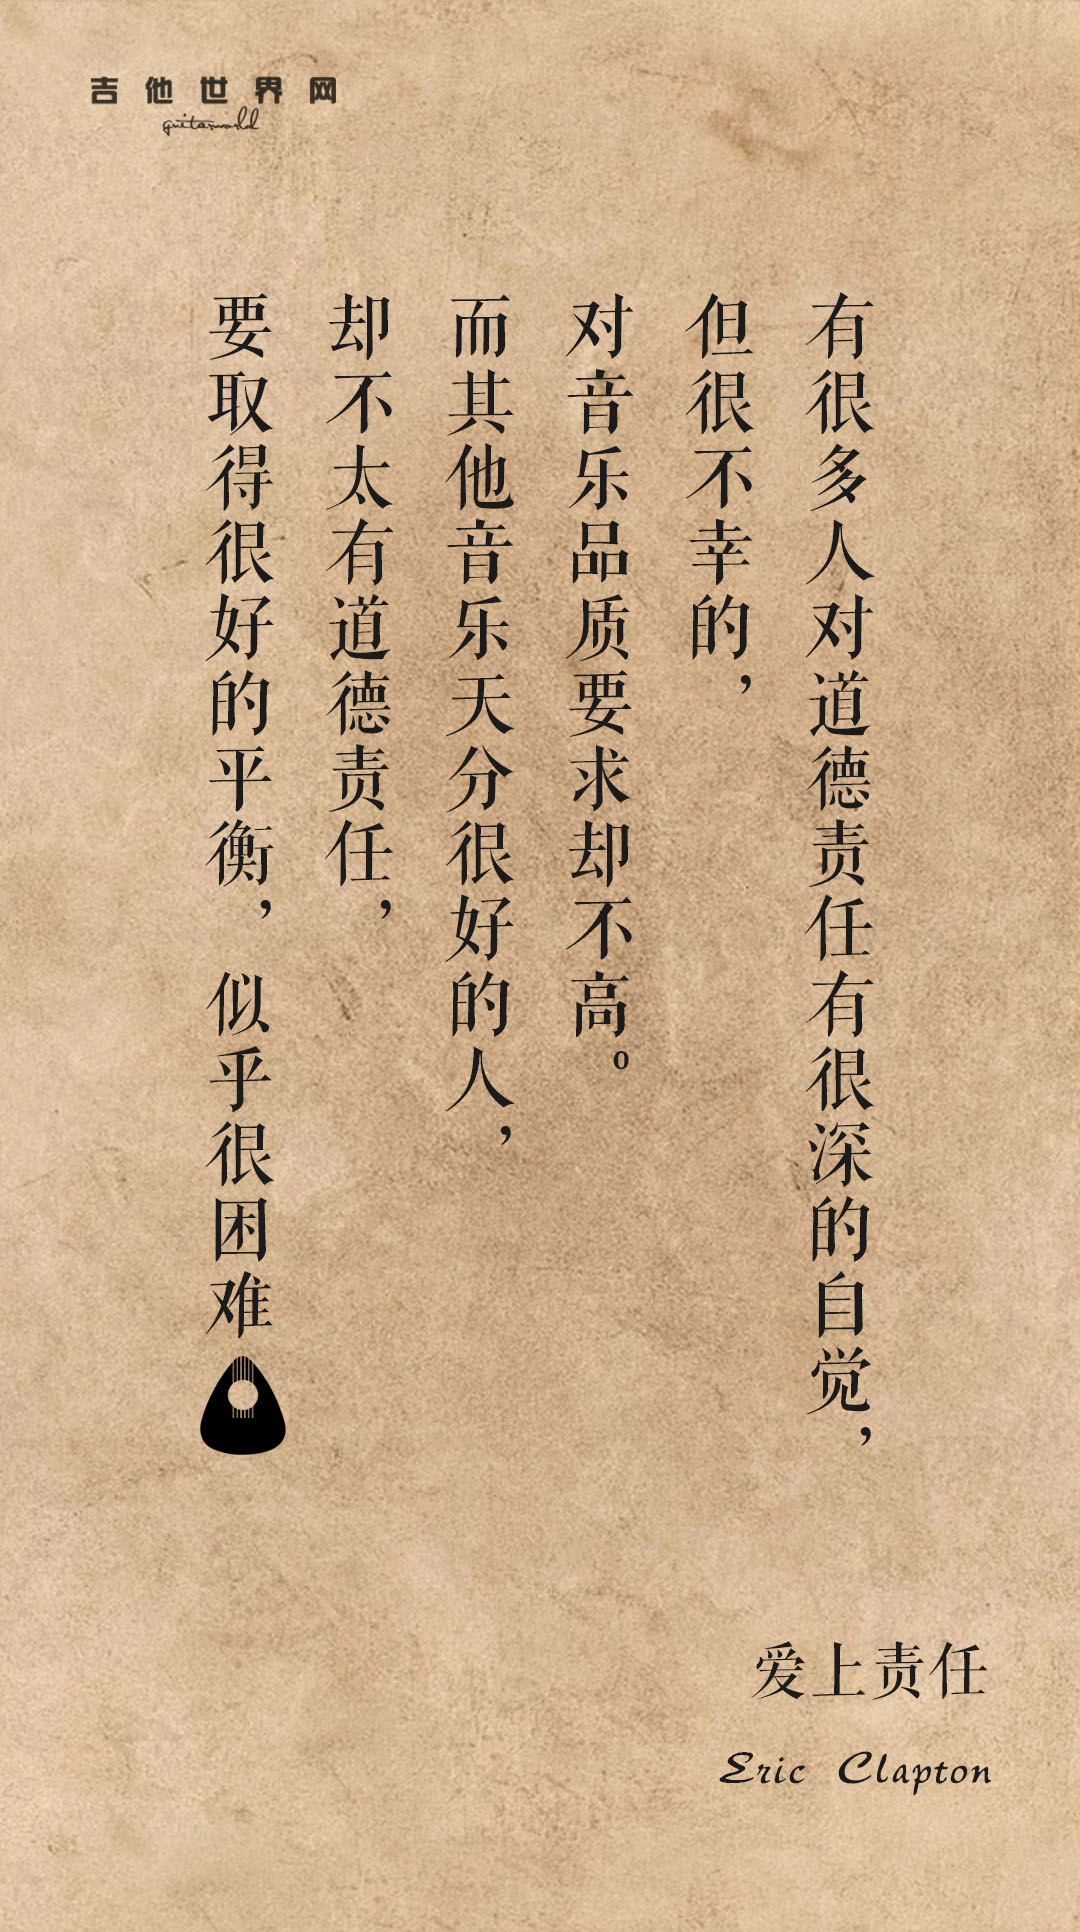 吉他世界网
guitarworld
有很多人对道德责任有很深的自觉，
但很不幸的，
对音乐品质要求却不高。
而其他音乐天分很好的人，
却不太有道德责任，
要取得很好的平衡，似乎很困难
爱上责任
Eric Clapton